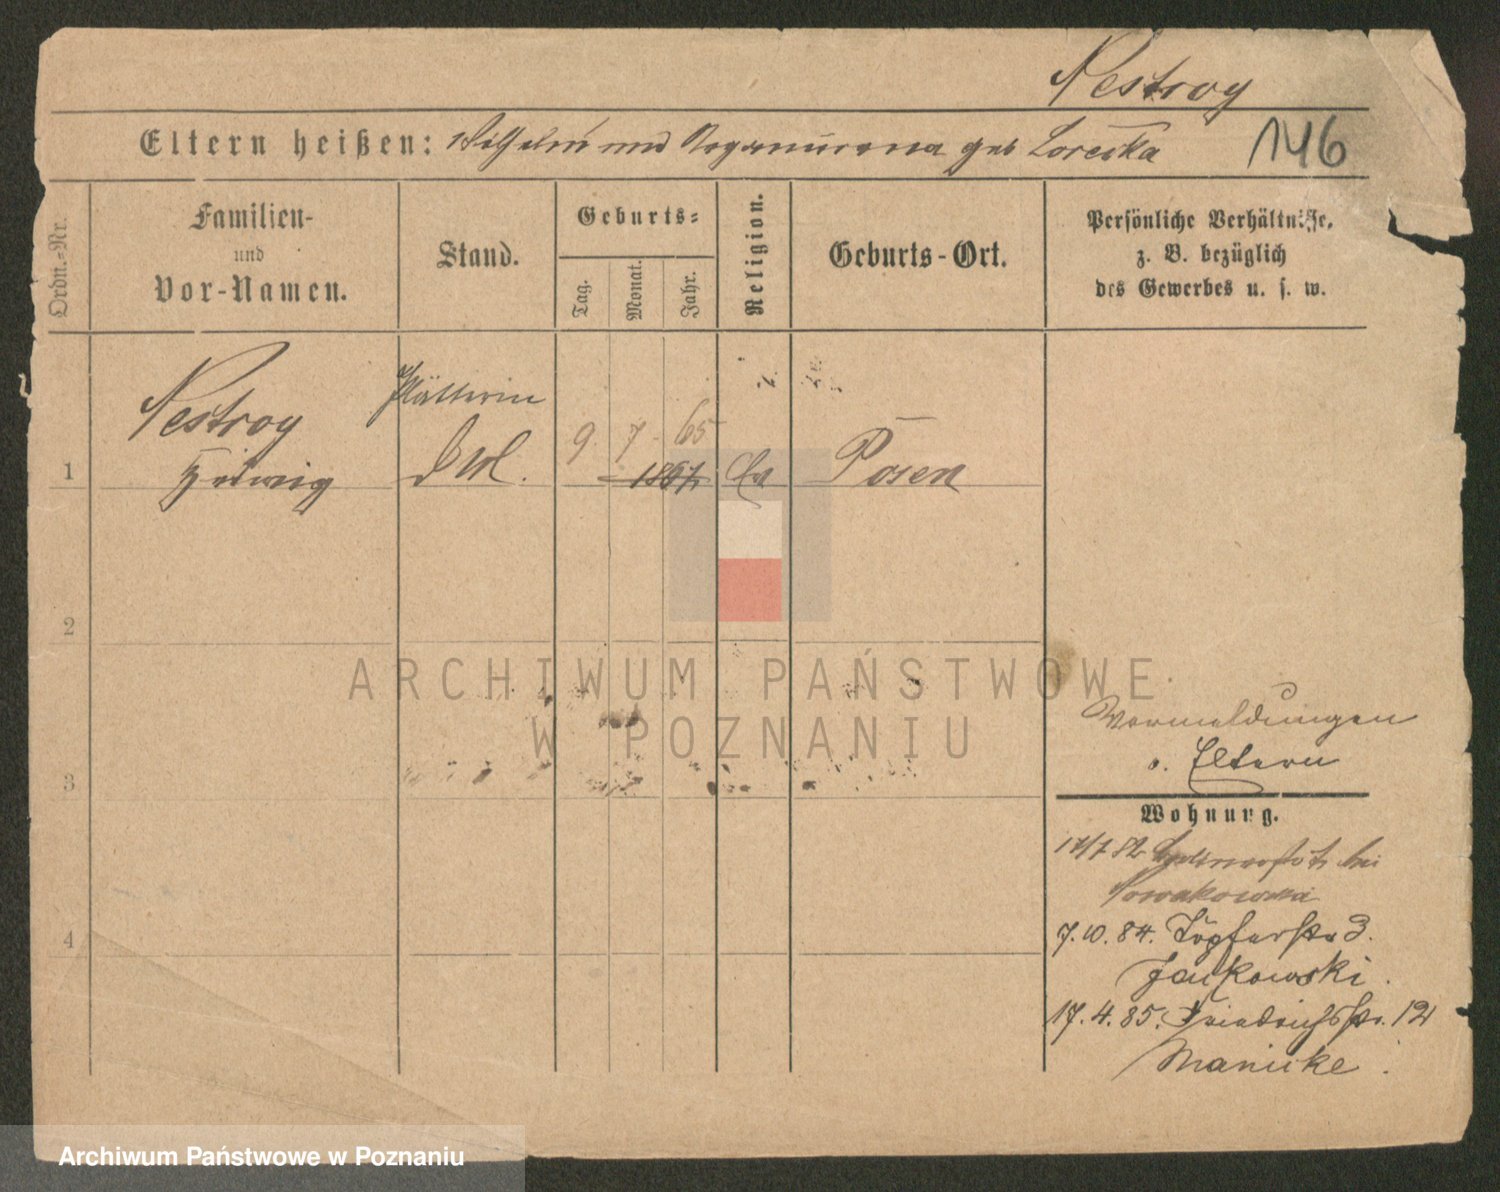 Nestroy
Eltern heißen: Wilhelm und geb Loreska
146
Ordn.-Nr.
Familien-
und
Vor-Namen.
Stand.
Geburts-
Tag.
Monat.
Jahr.
Religion.
Geburts-Ort.
Persönliche Verhältnisse,
z. B. bezüglich
des Gewerbes u. s. w.
1
Nestroy
Hedwig
Plätterin
9. 7. 65
1867
Ev
Posen
2
3
4
Vormeldungen
s. Eltern
Wohnung.
17/7 82 bei
Nowakowski
7.10.84. Töpferstr 3.
Jankowski.
17.4.85. Friedrichstr. 12
Manicke.
ARCHIWUM PAŃSTWOWE
W POZNANIU
Archiwum Państwowe w Poznaniu